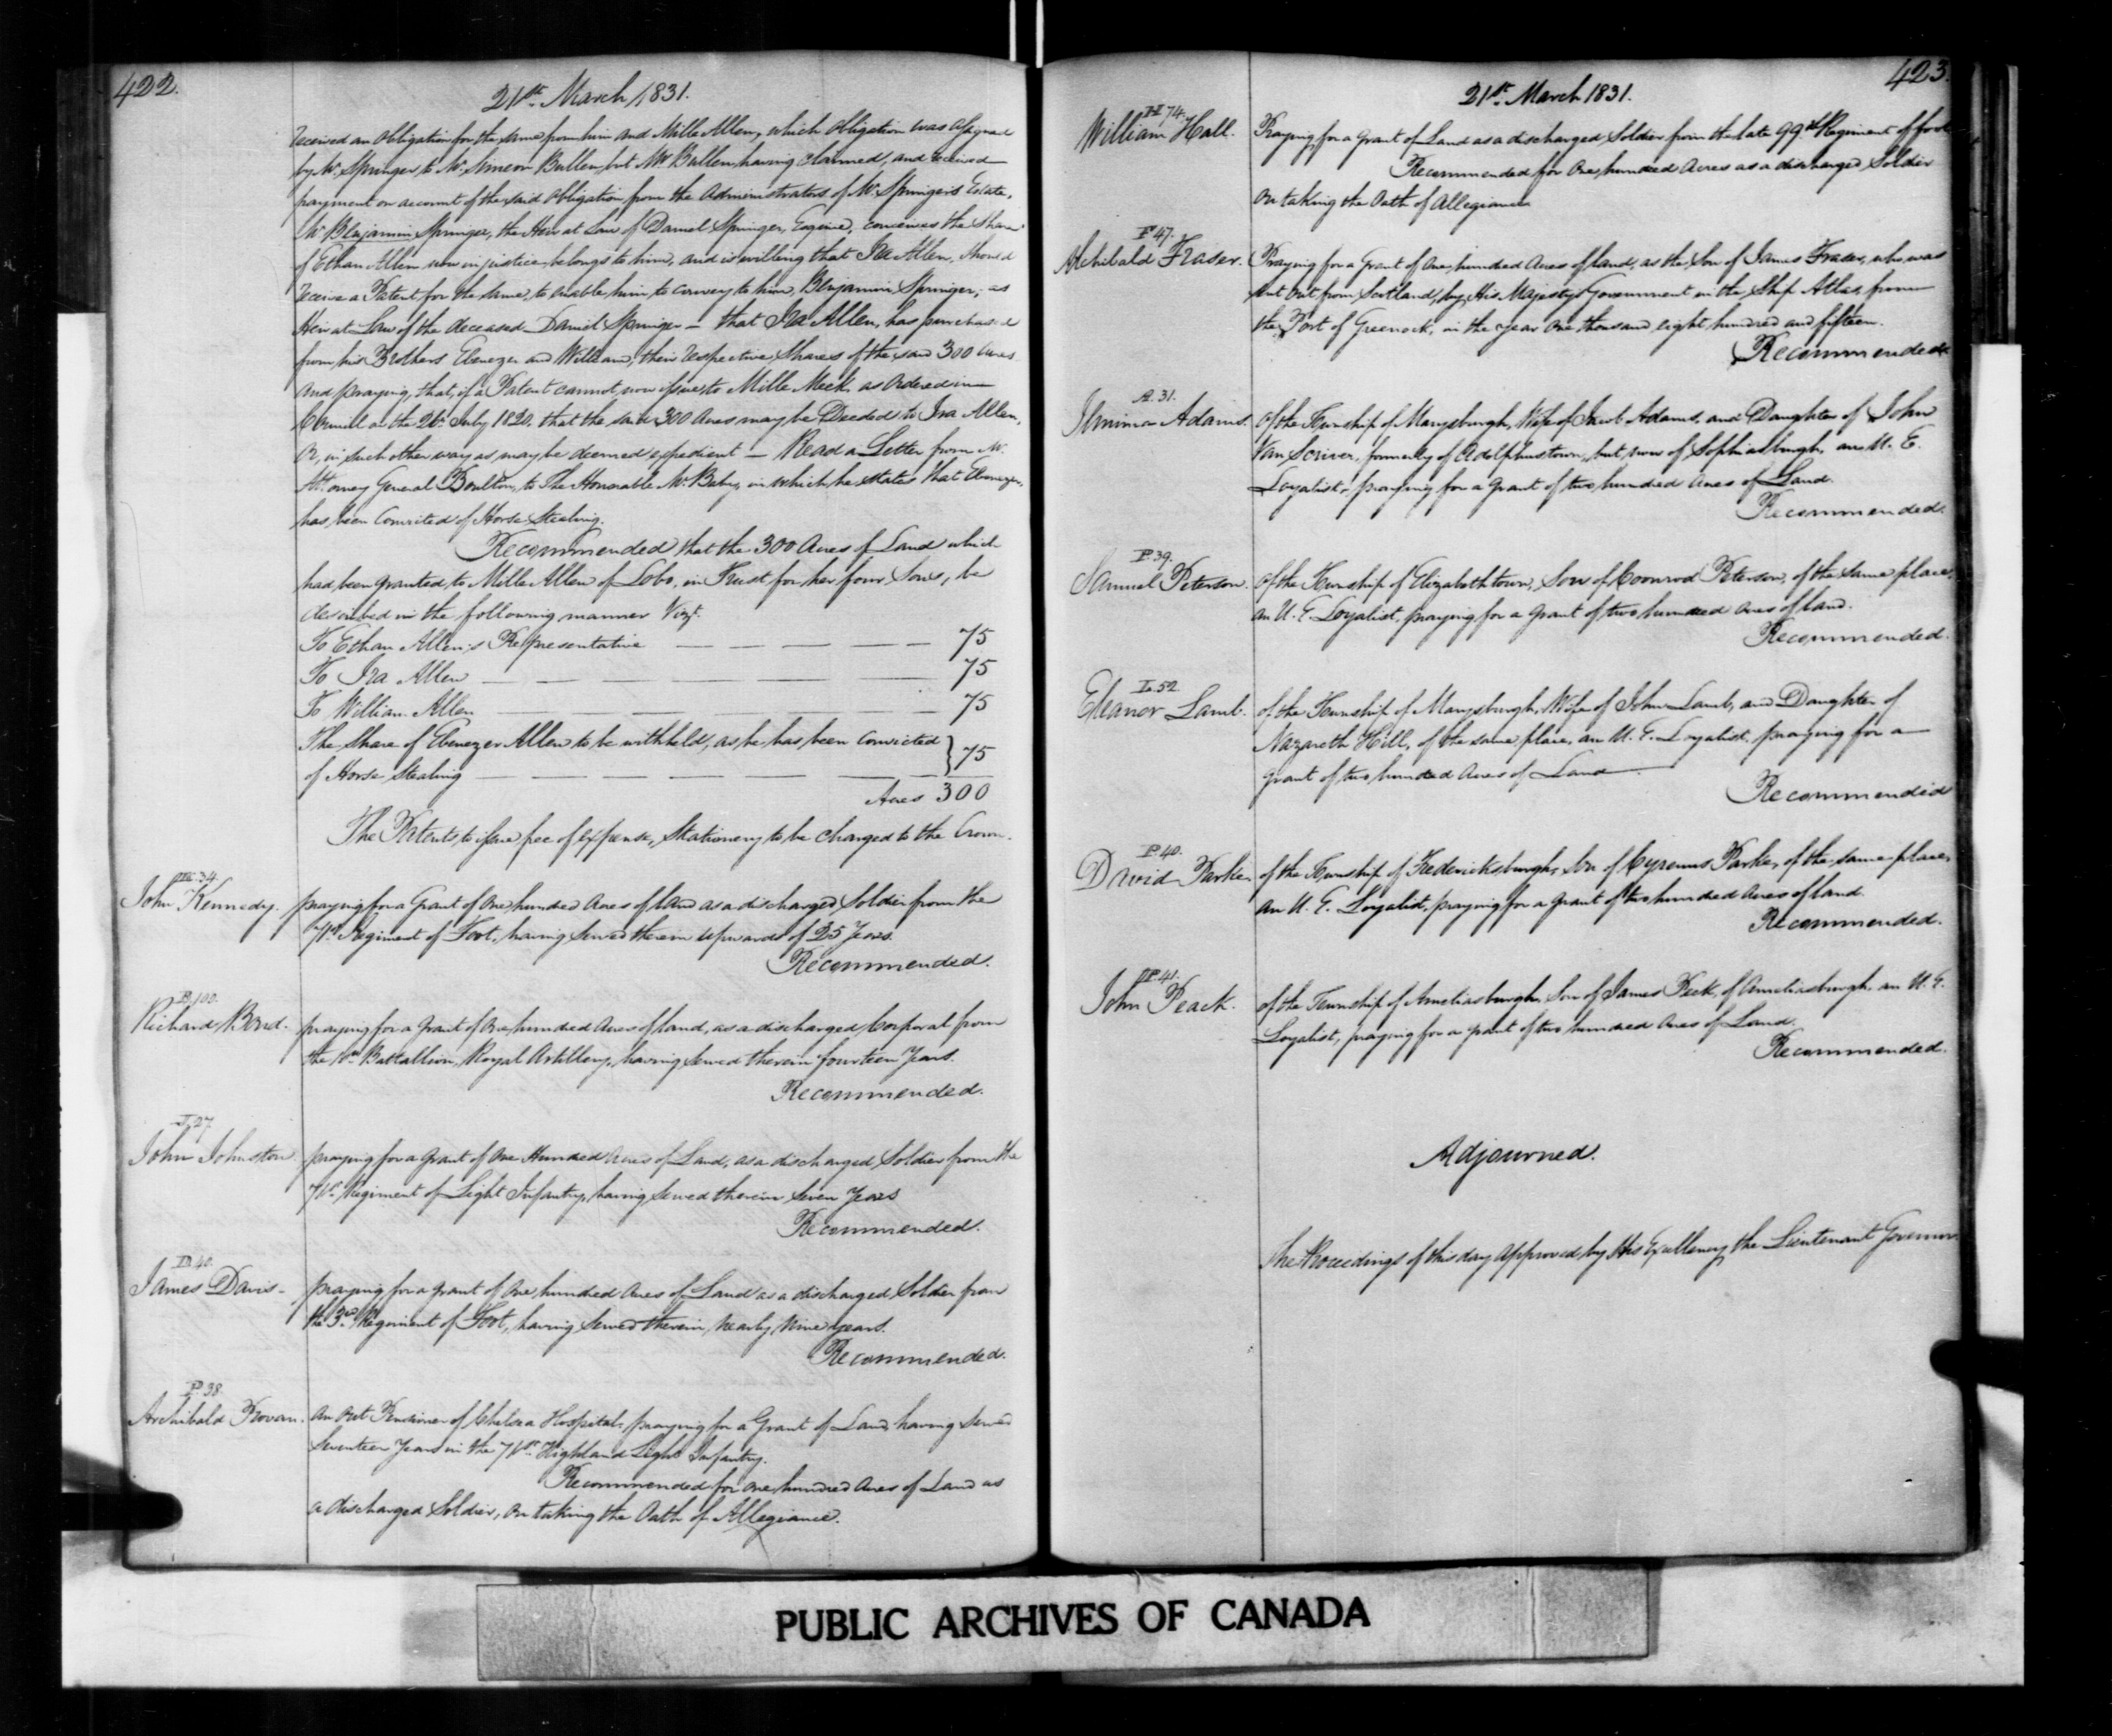 422.
21st. March 1831.
received an obligation for the same from him and Mille Allen, which obligation was assigned
by Mr. Springer to Mr. Simeon Bullen, but Mr Bullen having claimed, and received
payment on account of the said obligation from the Administrators of Mr. Springer's Estate,
Mr Benjamin Springer, the Heir at Law of Daniel Springer, Esquire, conceives the Share
of Ethan Allen now in justice belongs to him, and is willing that Ira Allen, should
receive a Patent for the same, to enable him to convey to him, Benjamin Springer, as
Heir at Law of the deceased Daniel Springer — that Ira Allen, has purchased
from his Brothers Ebenezer and William, their respective Shares of the said 300 Acres
and praying, that, if a Patent cannot now issue to Mille Meek, as Ordered in
Council on the 26th. July 1820, that the said 300 Acres may be Deeded to Ira Allen,
Or, in such other way as may be deemed expedient — Read a Letter from Mr.
Attorney General Boulton, to The Honorable Mr. Baby, in which he states that Ebenezer,
has been Convicted of Horse Stealing.
Recommended that the 300 Acres of Land which
had been granted to Mille Allen of Lobo, in Trust for her four Sons, be
described in the following manner Vizt.
To Ethan Allen's Representative — — — — — 75
To Ira Allen — — — — — 75
To William Allen — — — — — 75
The Share of Ebenezer Allen to be withheld, as he has been Convicted } 75
of Horse Stealing — — — — — —
Acres 300
The Patents to issue free of expense, Stationery to be charged to the Crown.
34.
John Kennedy. praying for a Grant of One hundred Acres of land as a discharged Soldier from the
71st Regiment of Foot, having served therein upwards of 25 Years.
Recommended.
B. 100.
Richard Bond. praying for a Grant of One hundred Acres of land, as a discharged Corporal from
the Battallion, Royal Artillery, having served therein fourteen Years.
Recommended.
J. 27
John Johnston. praying for a Grant of One Hundred Acres of Land, as a discharged Soldier from the
71st. Regiment of Light Infantry, having served therein Seven Years
Recommended.
D. 40.
James Davis - praying for a grant of One hundred Acres of Land as a discharged Soldier from
the 3rd. Regiment of Foot, having served therein, nearly Nine years.
Recommended.
P. 38.
Archibald Provan. An Out Pensioner of Chelsea Hospital, praying for a Grant of Land, having served
Seventeen Years in the 71st. Highland Light Infantry.
Recommended for one hundred Acres of Land as
a discharged Soldier, on taking the Oath of Allegiance.
423.
21st. March 1831.
H 74.
William Hall. Praying for a Grant of Land as a discharged Soldier from the late 99th Regiment of foot
Recommended for One hundred Acres as a discharged Soldier
On taking the Oath of Allegiance
F 47.
Archibald Fraser. Praying for a Grant of One hundred Acres of land, as the Son of James Fraser, who was
sent out from Scotland, by His Majesty's Government in the Ship Atlas, from
the Port of Greenock, in the year One thousand eight hundred and fifteen.
Recommended
A. 31.
Jemima Adams. Of the Township of Marysburgh, Wife of Jacob Adams, and Daughter of John
Van Scriver, formerly of Adolphustown, but now of Sophiasburgh, an U. E.
Loyalist, praying for a Grant of two hundred Acres of Land.
Recommended.
P. 39.
Samuel Peterson. Of the Township of Elizabethtown, Son of Coonrod Peterson, of the same place,
an U. E. Loyalist, praying for a Grant of two hundred Acres of land.
Recommended.
L. 52
Eleanor Lamb. of the Township of Marysburgh, Wife of John Lamb, and Daughter of
Nazareth Hill, of the same place, an U. E. Loyalist, praying for a
Grant of two hundred Acres of Land
Recommended
P 40.
David Parke. of the Township of Fredericksburgh, Son of Cyrenus Parke, of the same place,
an U. E. Loyalist, praying for a grant of two hundred Acres of land
Recommended.
P 41.
John Peack. of the Township of Ameliasburgh, Son of James Peck, of Ameliasburgh, an U. E.
Loyalist, praying for a grant of two hundred Acres of Land.
Recommended.
Adjourned.
The Proceedings of this day approved by His Excellency the Lieutenant Governor.
PUBLIC ARCHIVES OF CANADA